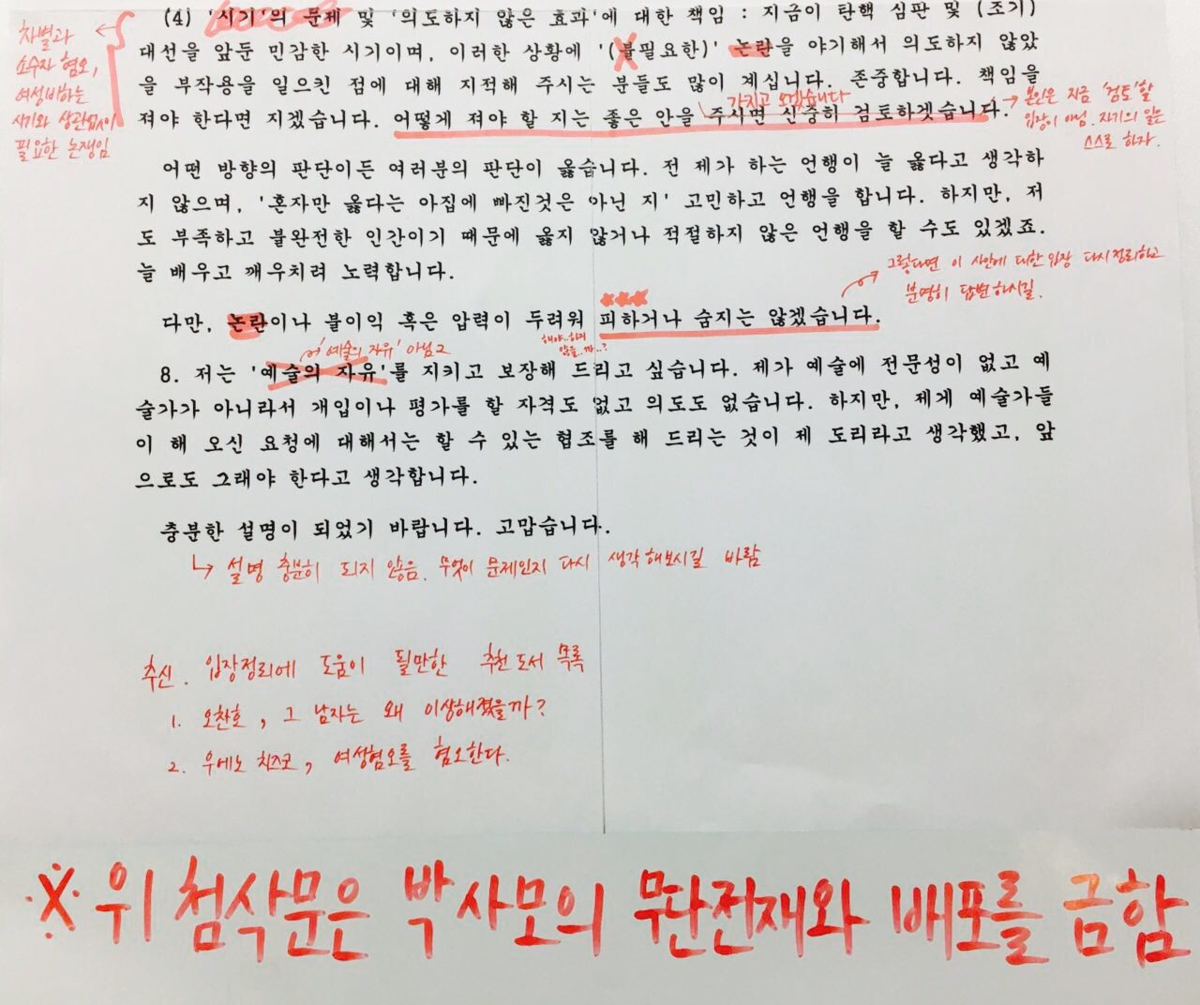 (4) '시기'의 문제 및 '의도하지 않은 효과'에 대한 책임 : 지금이 탄핵 심판 및 (조기)
대선을 앞둔 민감한 시기이며, 이러한 상황에 '(불필요한)' 논란을 야기해서 의도하지 않았
을 부작용을 일으킨 점에 대해 지적해 주시는 분들도 많이 계십니다. 존중합니다. 책임을
져야 한다면 지겠습니다. 어떻게 져야 할 지는 좋은 안을 주시면 신중히 검토하겟습니다.
차별과
소수자 혐오,
여성비하는
시기와 상관없이
필요한 논쟁임
가지고 오겠습니다
본인은 지금 '검토'할
입장이 아님. 자기의 일은
스스로 하자.
어떤 방향의 판단이든 여러분의 판단이 옳습니다. 전 제가 하는 언행이 늘 옳다고 생각하
지 않으며, '혼자만 옳다는 아집에 빠진것은 아닌 지' 고민하고 언행을 합니다. 하지만, 저
도 부족하고 불완전한 인간이기 때문에 옳지 않거나 적절하지 않은 언행을 할 수도 있겠죠.
늘 배우고 깨우치려 노력합니다.
그렇다면 이 사안에 대한 입장 다시 정리하고
분명히 답변하시길.
다만, 논란이나 불이익 혹은 압력이 두려워 피하거나 숨지는 않겠습니다.
'예술의 자유' 아님
8. 저는 '예술의 자유'를 지키고 보장해 드리고 싶습니다. 제가 예술에 전문성이 없고 예
술가가 아니라서 개입이나 평가를 할 자격도 없고 의도도 없습니다. 하지만, 제게 예술가들
이 해 오신 요청에 대해서는 할 수 있는 협조를 해 드리는 것이 제 도리라고 생각했고, 앞
으로도 그래야 한다고 생각합니다.
충분한 설명이 되었기 바랍니다. 고맙습니다.
↳ 설명 충분히 되지 않음. 무엇이 문제인지 다시 생각해보시길 바람
추신. 입장정리에 도움이 될만한 추천도서 목록
1. 오찬호, 그 남자는 왜 이상해졌을까?
2. 우에노 치즈코, 여성혐오를 혐오한다.
※ 위 첨삭문은 박사모의 무단전재와 배포를 금함